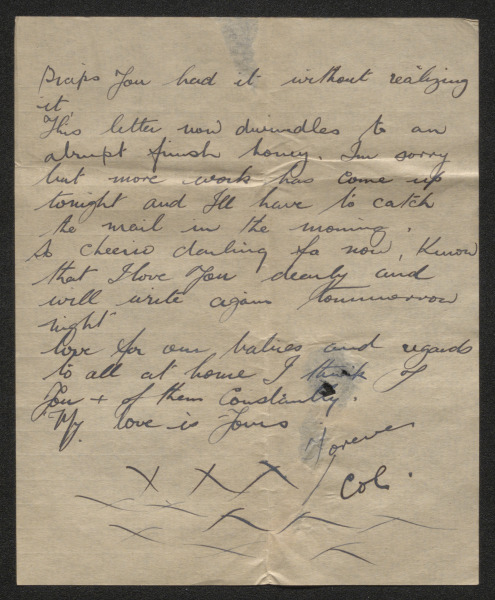 Praips You had it without realizing
it.
This letter now dwindles to an
abrupt finish honey. I'm sorry
but more work has come up
tonight and I'll have to catch
the mail in the morning.
So cheerio darling fa now, Know
that I love You dearly and
will write again tommorrow
night
love for our babies and regards
to all at home I think of
You + of them Constantly.
My love is Yours
Forever
Col.
X X X
X X X X X
X X X X